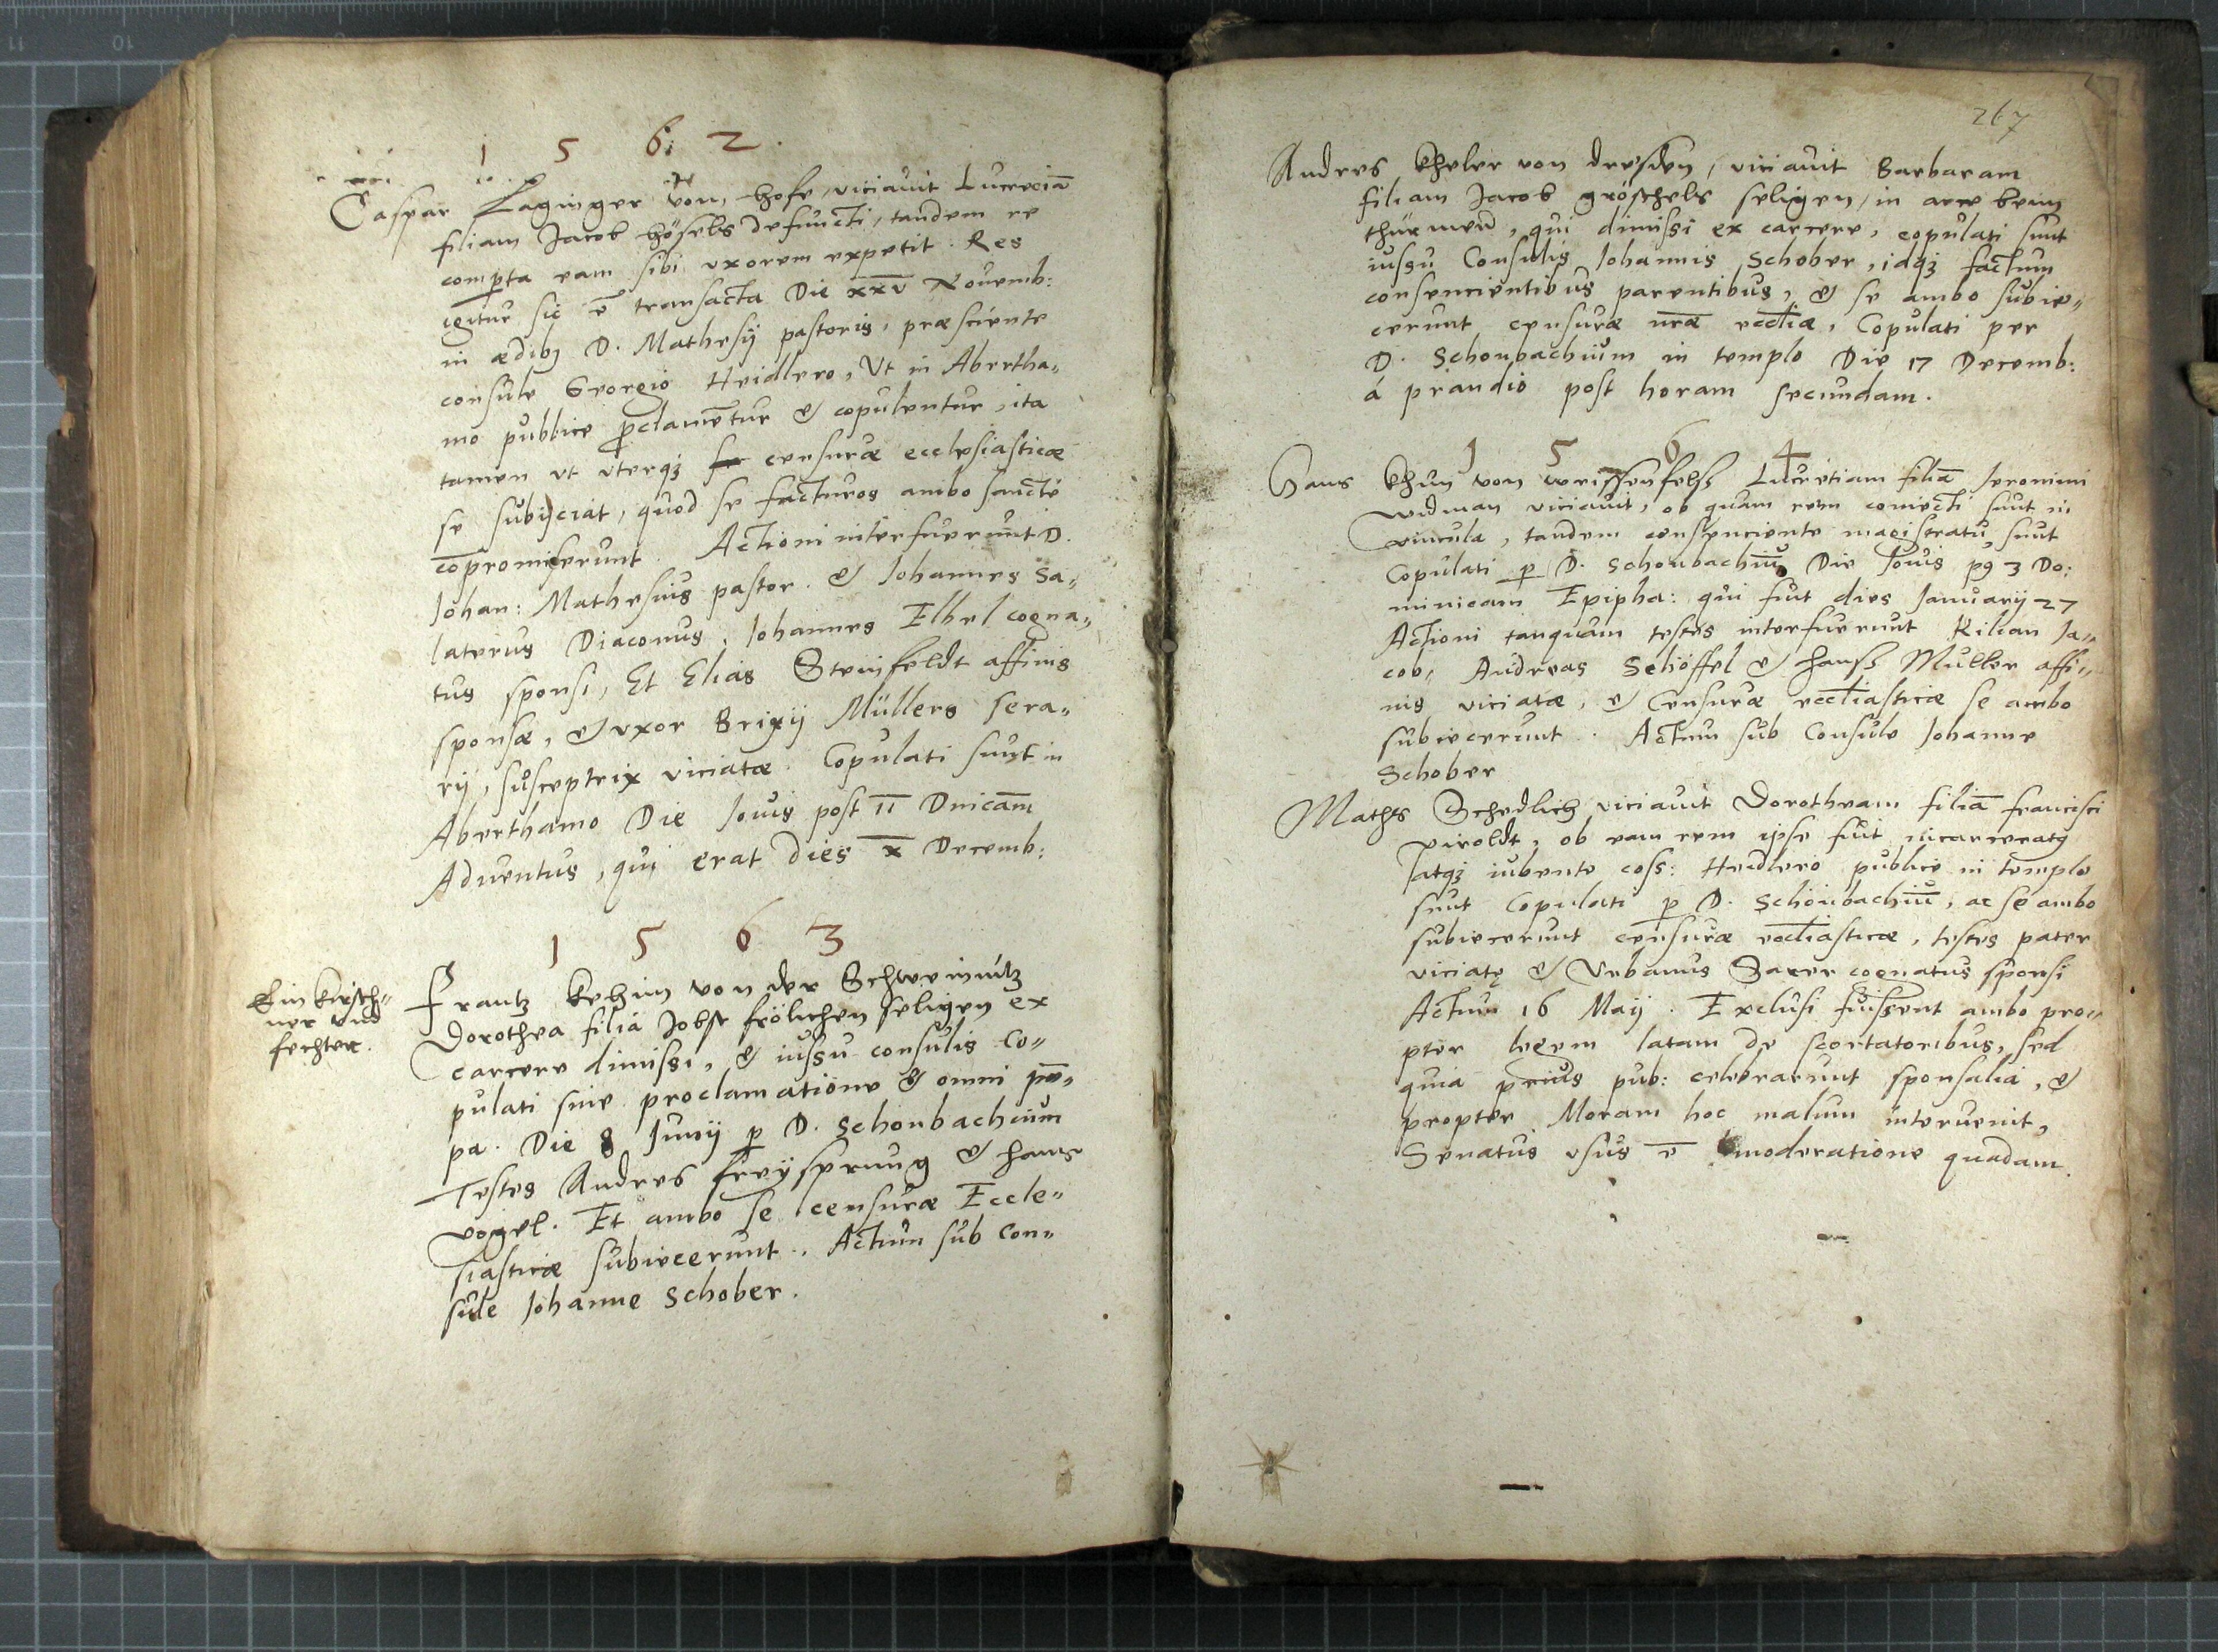 1 5 6 2.
Caspar Laginger von hofe, viciauit Lucreciā
filiam Jacob hösels defuncti, tandem re
comperta eam sibi uxorem expetit. Res
igitur sic ē transacta Die xxv Nouemb:
in ædibꝫ D. Mathesij pastoris, præsciente
consule Georgio Heidlero, Vt in Abertha„
mo publice proclamētur & copulentur, ita
tamen vt vterqꝫ censuræ ecclesiasticæ
se subijciat, quod se facturos ambo sanctè
cōpromiserunt. Actioni interfuerunt D.
Johan: Mathesius pastor. & Johannes Sa„
laterus Diaconus, Johannes Elbel cogna„
tus sponsi, Et Elias Steinfeldt affinis
sponsæ, & vxor Brixij Müllers sera„
rij, susceptrix viciatæ. Copulati sunt in
Aberthamo Die Jouis post II Dnicam̄
Aduentus, qui erat dies x̄ Decemb:
1 5 6 3
Ein kirsch„
ner vnd
fechter.
Frantz Kehim von der Schweinitz
Dorothea filia Jobst frölichen seligen ex
carcere dimissi, & iussu consulis Co„
pulati sine proclamatione & omni pō„
pa. Die 8 Junij p D. Schonbachium
Testes Andres freysprung & hans
vogel. Et ambo se censuræ Eccle„
siasticæ subiecerunt. Actum sub Con„
sule Johanne Schober.
267
Andres Kheler von dresden, viciauit Barbaram
filiam Jacob gröschels seligen, in arce beim
thürmen, qui dimissi ex carcere, copulati sunt
iussu Consulis Johannis Schober, idqꝫ factum
consencientibus parentibus, & se ambo subie„
cerunt censuræ nr̄æ eccl̄iæ, Copulati per
D. Schonbachium in templo Die 17 Decemb:
á prandio post horam secundam.
1 5 6 4
Hans Khun von weissenfelss Lucretiam filiā Jeronimi
widman viciauit, ob quam rem coniecti sunt in
vincula, tandem consenciente magistratu, sunt
Copulati p D. Schonbachiū Die Jouis pꝰ 3 Do:
minicam Epipha: qui fuit dies Januarij 27
Actioni tanquam testes interfuerunt Kilian Ja„
cob, Andreas Schöffel & hanss Muller affi„
nis viciatæ, & Censuræ eccl̄iasticæ se ambo
subiecerunt. Actum sub Consule Johanne
Schober
Maths Schedlich viciauit Dorotheam filiā francisci
piroldt, ob eam rem ipse fuit incarceratꝰ
atqꝫ iubente coss: Heidlero publice in templo
sunt Copulati p D. Schönbachiū, ac se ambo
subiecerunt censuræ eccl̄iasticæ, testes pater
viciatę & Vrbanus Saxer cognatus sponsi
Actum 16 Maij. Exclusi fuissent ambo pro„
pter legem latam de scortatoribus, sed
quia prius pub: celebrarunt sponsalia, &
propter Moram hoc malum interuenit,
Senatus vsus ē moderatione quadam.